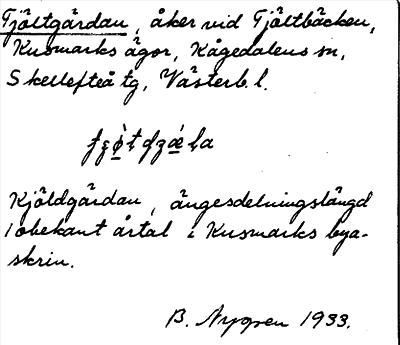 Tjältgärdan, åker vid Tjältbäcken,
Kusmarks ägor, Kågedalens sn,
Skellefteå tg, Västerb. l.
Kjöldgärdan, ängesdelningslängd
i obekant årtal i Kusmarks bya-
skrin.
B. Nygren 1933.